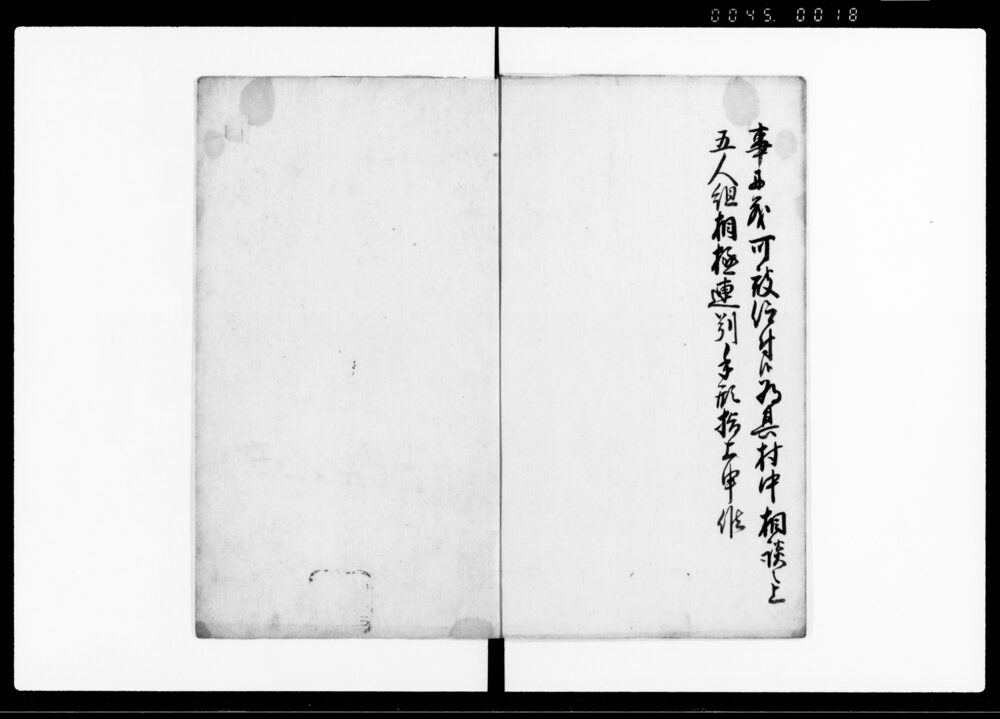 0045.0018
事品ニ茂可被仰付候為其村中相談之上
五人組相極連判手形指上申候